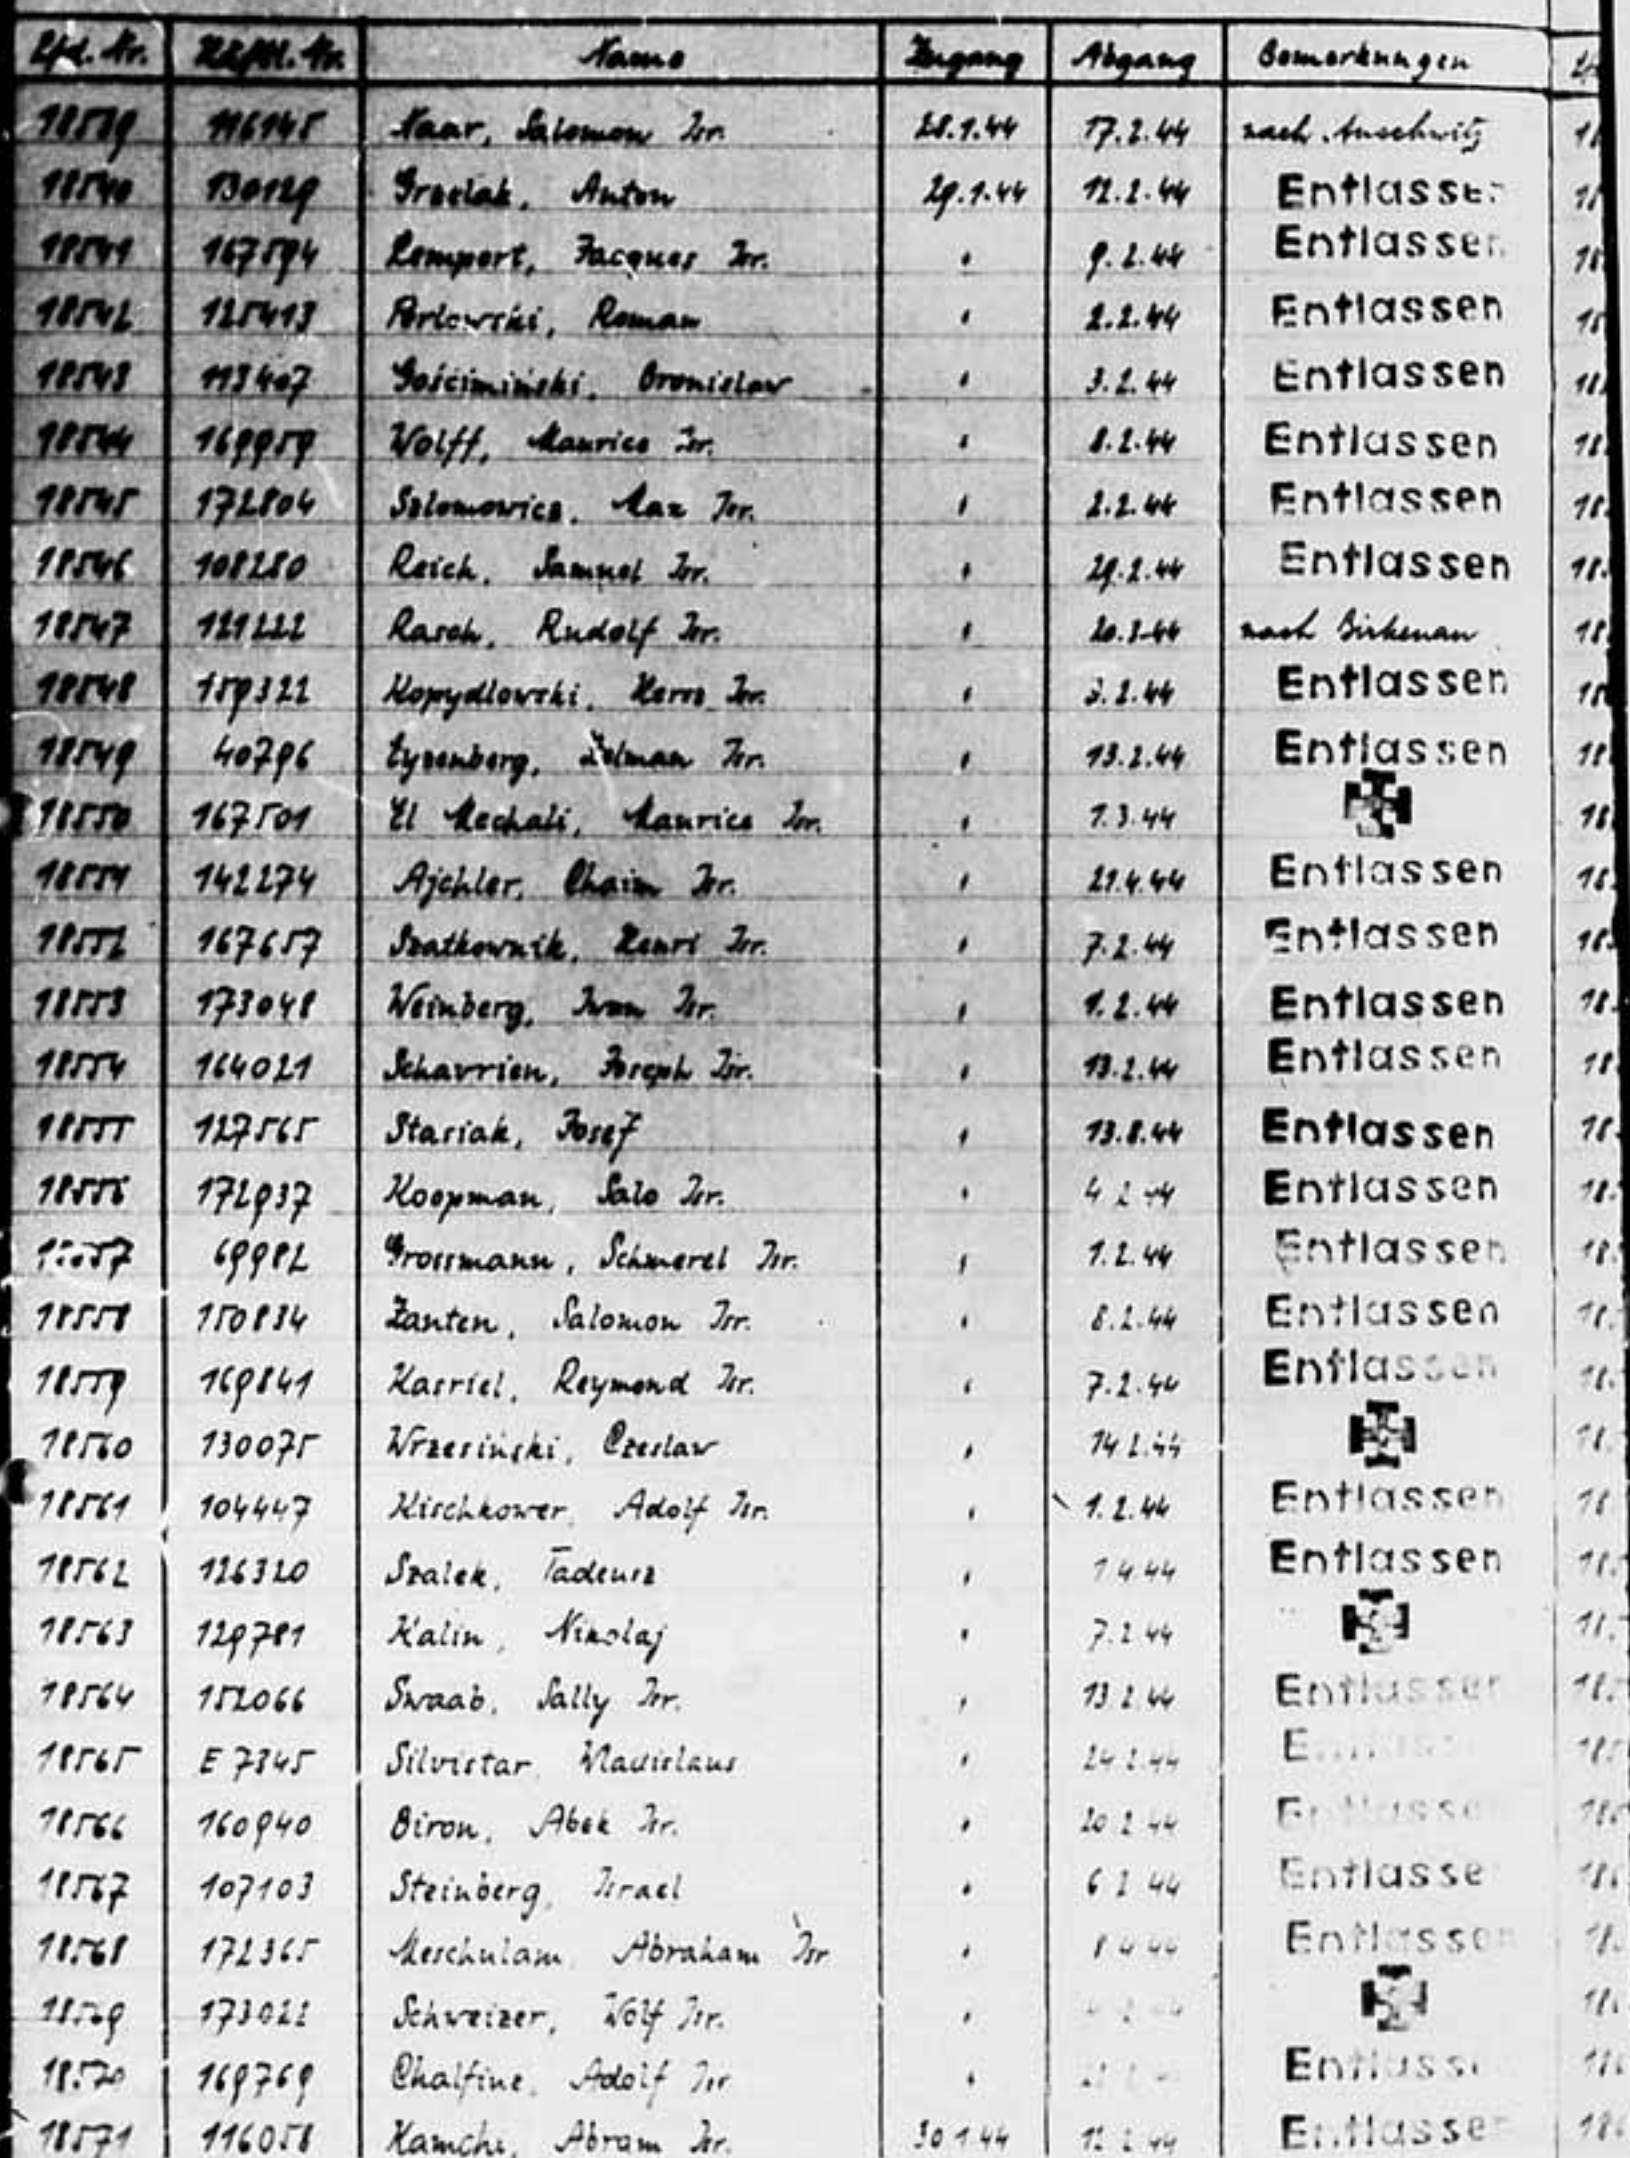 Lfd. Nr. Häftl. Nr. Name Zugang Abgang Bemerkungen
18539 116145 Naar, Salomon Isr. 28.1.44 17.2.44 nach Auschwitz
18540 130129 Grzelak, Anton 29.1.44 12.2.44 Entlassen
18541 167594 Lempert, Jacques Isr. " 9.2.44 Entlassen
18542 125413 Perlowski, Roman " 2.2.44 Entlassen
18543 113407 Gościmiński, Bronislaw " 3.2.44 Entlassen
18544 169959 Wolff, Maurice Isr. " 8.2.44 Entlassen
18545 172804 Szlomowicz, Max Isr. " 2.2.44 Entlassen
18546 108280 Reich, Samuel Isr. " 29.2.44 Entlassen
18547 121222 Rasch, Rudolf Isr. " 20.2.44 nach Birkenau
18548 159322 Kopydlowski, Hersz Isr. " 3.2.44 Entlassen
18549 40796 Eyzenberg, Zelman Isr. " 13.2.44 Entlassen
18550 167501 El Mechali, Maurice Isr. " 1.3.44
18551 142274 Ajchler, Chaim Isr. " 21.4.44 Entlassen
18552 167657 Szatkownik, Henri Isr. " 7.2.44 Entlassen
18553 173048 Weinberg, Iwan Isr. " 1.2.44 Entlassen
18554 164021 Schavrien, Joseph Isr. " 13.2.44 Entlassen
18555 127565 Stasiak, Josef " 13.8.44 Entlassen
18556 172937 Koopman, Salo Isr. " 4.2.44 Entlassen
18557 69982 Grossmann, Schmerel Isr. " 1.2.44 Entlassen
18558 150834 Zanten, Salomon Isr. " 8.2.44 Entlassen
18559 169841 Kasriel, Reymond Isr. " 7.2.44 Entlassen
18560 130075 Wrzesiński, Czeslaw " 14.2.44
18561 104447 Kischkower, Adolf Isr. " 1.2.44 Entlassen
18562 126320 Szalek, Tadeusz " 1.4.44 Entlassen
18563 129781 Kalin, Nikolaj " 7.2.44
18564 152066 Swaab, Sally Isr. " 13.2.44 Entlassen
18565 E 7345 Silvistar, Wladislaus " 24.2.44
18566 160940 Biron, Abek Isr. " 20.2.44 Entlassen
18567 107103 Steinberg, Israel " 6.2.44 Entlassen
18568 172365 Meschulam, Abraham Isr. " 8.4.44 Entlassen
18569 173022 Schweizer, Wolf Isr. "
18570 169769 Chalfine, Adolf Isr. " Entlassen
18571 116058 Kamchi, Abram Isr. 30.1.44 12.2.44 Entlassen